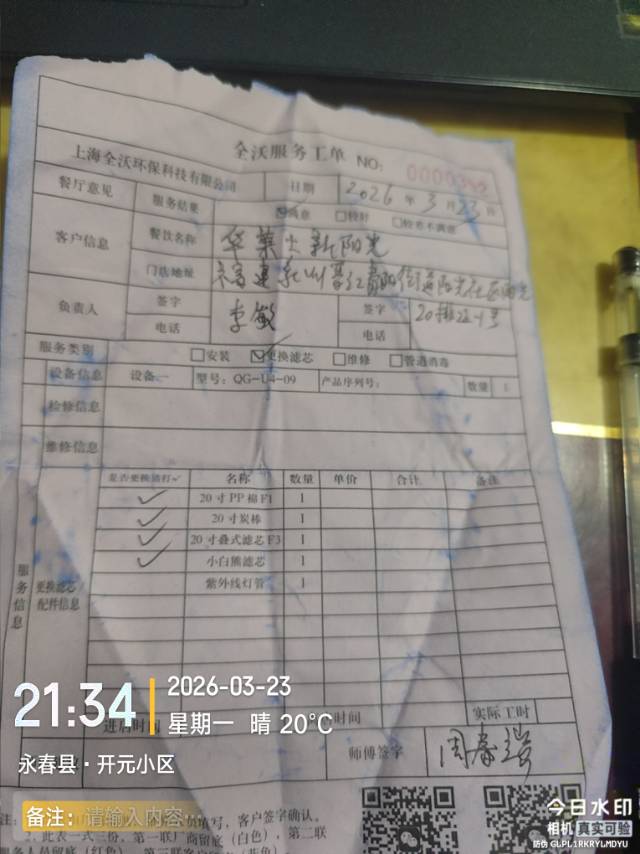 全沃服务工单 NO:
上海全沃环保科技有限公司 日期 2026 年 3 月 23 日
餐厅意见 服务结果 ☑满意 □较好 □较差不满意
客户信息 餐饮名称 华莱士新阳光
门店地址
负责人 签字 李敏 签字
电话 电话
服务类别 □安装 ☑更换滤芯 □维修 □管道消毒
设备信息 设备一 型号: QG-U4-09 产品序列号: 数量 1
检修信息
维修信息
是否更换请打✓ 名称 数量 单价 合计 备注
✓ 20寸PP棉F1 1
✓ 20寸炭棒 1
✓ 20寸叠式滤芯F3 1
✓ 小白熊滤芯 1
紫外线灯管 1
服务信息
更换滤芯/配件信息
进店时间 时间 实际工时
师傅签字
21:34
2026-03-23
星期一 晴 20°C
永春县·开元小区
备注: 请输入内容
填写,客户签字确认。
此表一式三份,第一联厂商留底(白色),第二联
服务人员留底(红色),第三联客户留底(黄色)
今日水印
相机 真实可验
防伪 GLPL1RKRYLMDYU